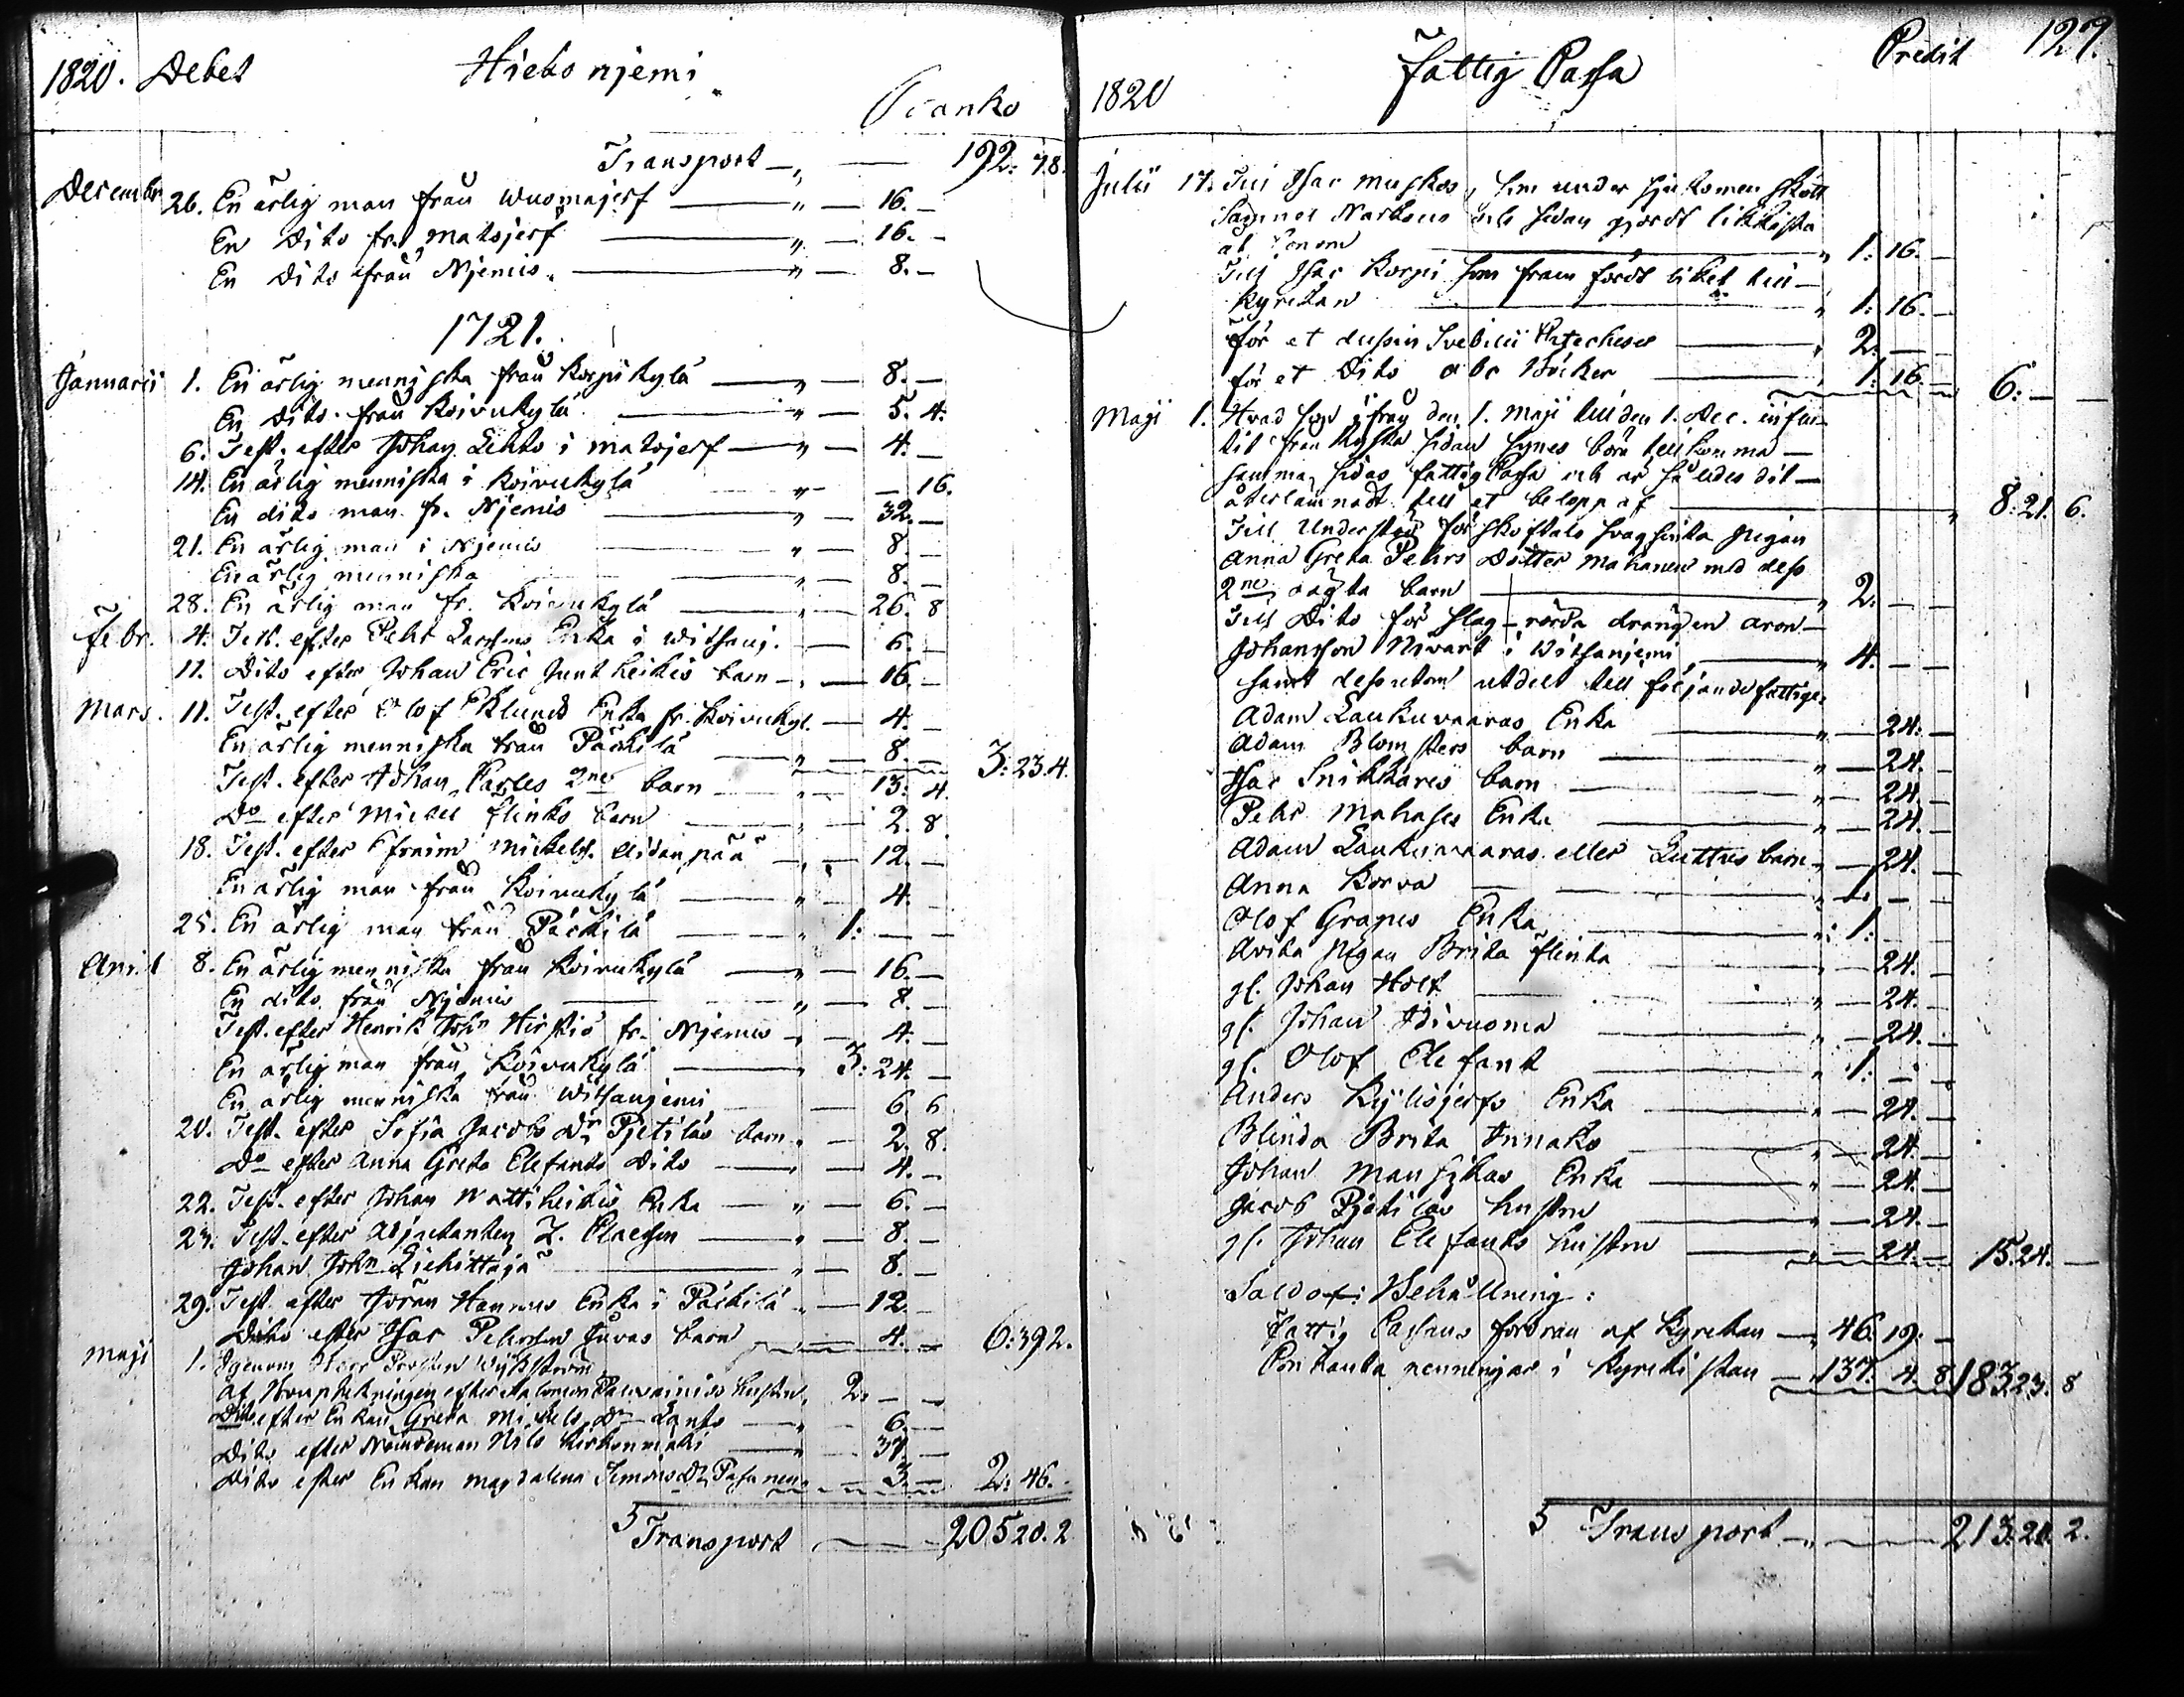 1820. Debet Hietaniemi
Banko
Transport — " — 192: 7.8.
Decembr 26. En ärlig man från Wuomajerf — " — 16. —
En Dito fr. Matojerf — " — 16. —
En Dito från Njemis. — " — 8. —
1721.
Januarii 1. En ärlig menniska från Korpikylä — " — 8. —
En Dito från Koivukylä — " — 5. 4.
6. Test. efter Johan Lehto i Matojerf — " — 4. —
14. En ärlig menniska i Koivukylä " — 16.
En dito man fr. Njemis — " — 32. —
21. En ärlig man i Njemis — " — 8. —
En ärlig menniska — " — 8. —
28. En ärlig man fr. Koivukylä — " — 26. 8
Febr. 4. Test. efter Pehr Larssons Enka i Witsanj. — 6. —
11. Dito efter Johan Eric Junt heikis barn — " — 16. —
Mars. 11. Test. efter Olof Eklunds Enka fr. Koivukyl. — 4. —
En ärlig menniska från Päckilä — " — 8. — 3: 23.4.
Test. efter Johan Carles 2ne barn — " — 13. 4.
Do efter Michel Flinks barn — " — 2. 8.
18. Test. efter Efraim Mickels. Aidanpää — " — 12. —
En ärlig man från Koivukylä — " — 4. —
25. En ärlig man från Päckilä — " 1: — —
April 8. En ärlig menniska från Koivukylä — " — 16. —
En dito från Njemis — " — 8. —
Test. efter Henrik John Hirstiö fr. Njemis — " — 4. —
En ärlig man från Koivukylä — " 3: 24. —
En ärlig menniska från Witsanjemi — 6. 6
20. Test. efter Sofia Jacobs Dr Pjetiläs barn " — 2. 8.
Do efter Anna Greta Elefants Dito — " — 4. —
22. Test. efter Johan Mattiheikis Enka — " — 6. —
23. Test. efter Adjutanten Z. Claesson — " — 8. —
Johan Johns Liehittäjä — " — 8. —
29. Test. efter Jöran Hannus Enka i Päckilä " — 12. —
Dito efter Isac Pehrsson Juvas barn — 4. — 6: 39 2.
Maji 1. Igenom Herr Prosten Wijkström
af Uppteckningen efter Salomon Pauvainios hustru, 2. — —
Dito efter Enkan Greta Mickels Dr Lanto — " — 6. —
Dito efter Nämdeman Nils Kirkonmäki — " — 37. —
Dito efter Enkan Magdalena Simons Dr Pasanen — 3. — 2: 46.
5 Transport — 205 20. 2

1820 Fattig Cassa Credit 127.
Julii 17. Till Isac Muskos, som under sjukdomen skött
Samuel Narkaus och sedan gjordt likkista
åt honom — " 1: 16. —
Till Isac Korpi som fram fördt liket till
Kyrckan — " 1: 16. —
För et dussin Svebilii Catecheser — " 2. — —
för et Dito abc Böcker — " 1: 16. — 6: — —
Maji 1. Hvad som ifrån den 1. Maji till den 1. Dec. influ-
tit från Ryska sidan synes böra tillkomma
samma sidas fattig Cassa och är således dit-
återlämnadt till et belopp af — " 8: 21. 6.
Till Understöd för svagsinta pigan
Anna Greta Pehrs Dotter Mahanen med dess
2ne oägta barn — " 2. — —
Till Dito för slag-rörda drängen Aron
Johansson Nivart i Witsanjemi — " 4. — —
samt dessutom utdelt till följande fattige,
Adam Laukuvaaras Enka — " — 24. —
Adam Blomsters barn — " — 24. —
Isac Snickares barn — " — 24. —
Pehr Mahases Enka — " — 24. —
Adam Laukuvaaras eller Luttus barn " — 24. —
Anna Korva — " 1. — —
Olof Grapes Enka — " 1: — —
Avita pigan Brita Flinta — " — 24. —
gl. Johan Holt — " — 24. —
gl. Johan Adivuoma — " — 24. —
gl. Olof Elefant — " 1: — —
Anders Kylisjerfs Enka — " — 24. —
Blinda Brita Annaks — " — 24. —
Johan Mansikas Enka — " — 24. —
Jacob Pjetiläs hustru — " — 24. —
gl. Johan Elefants hustru — " — 24. — 15. 24. —
Saldo: Behållning:
Fattig Cassans fordran af Kyrckan — " 46. 19. —
Contanta penningar i Kyrckistan — 137. 4. 8 183. 23. 8
5 Transport — " — 213. 21. 2.